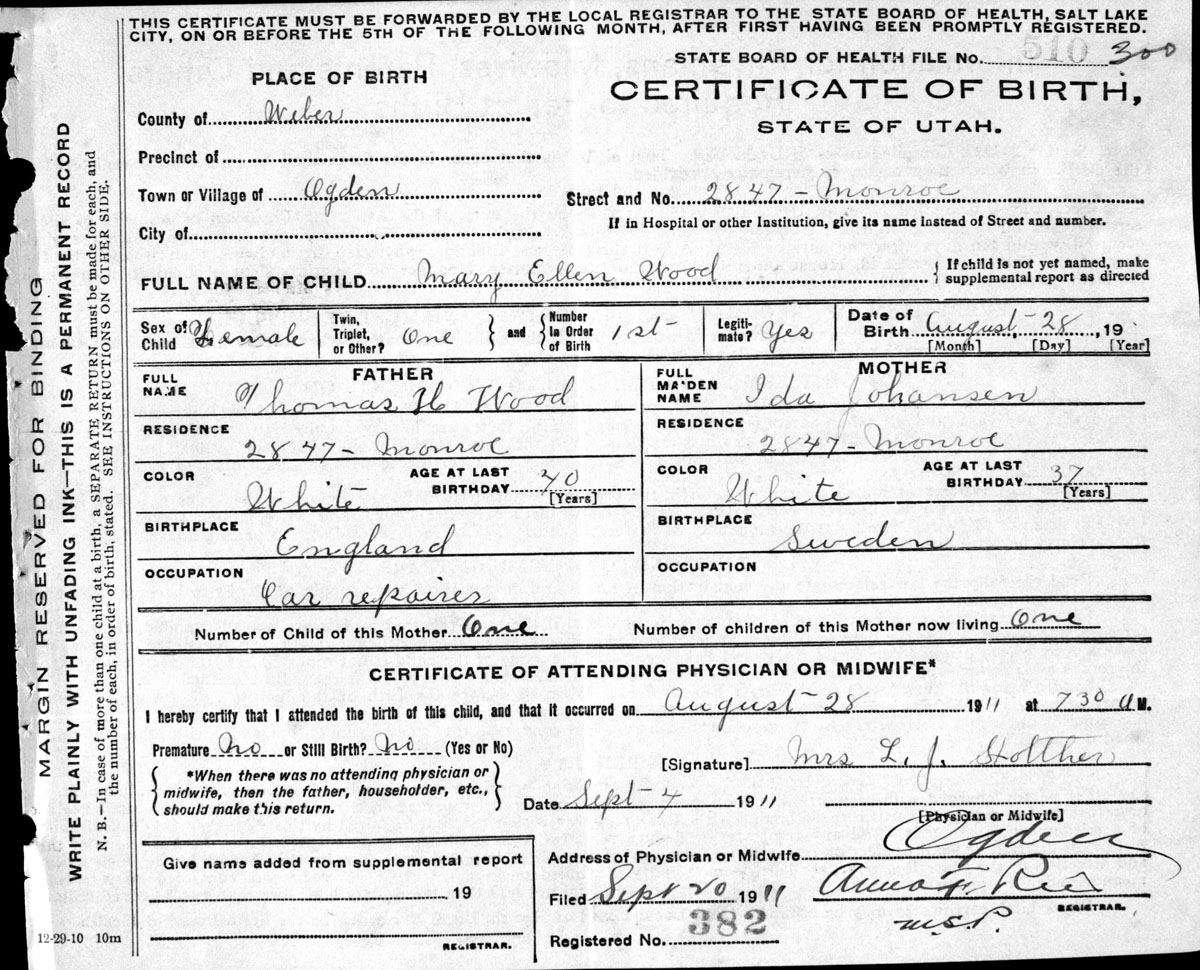 THIS CERTIFICATE MUST BE FORWARDED BY THE LOCAL REGISTRAR TO THE STATE BOARD OF HEALTH, SALT LAKE
CITY, ON OR BEFORE THE 5TH OF THE FOLLOWING MONTH, AFTER FIRST HAVING BEEN PROMPTLY REGISTERED.
STATE BOARD OF HEALTH FILE No. 510 300
PLACE OF BIRTH
CERTIFICATE OF BIRTH,
STATE OF UTAH.
County of Weber
Precinct of
Town or Village of Ogden
Street and No. 2847 - Monroe
City of
If in Hospital or other Institution, give its name instead of Street and number.
FULL NAME OF CHILD Mary Ellen Wood
{ If child is not yet named, make
supplemental report as directed
Sex of Child Female
Twin, Triplet, or Other? One } and { Number in Order of Birth 1st
Legitimate? Yes
Date of Birth August 28, 19
[Month] [Day] [Year]
FATHER
FULL NAME Thomas H Wood
RESIDENCE 2847 - Monroe
COLOR White
AGE AT LAST BIRTHDAY 40 [Years]
BIRTHPLACE England
OCCUPATION Car repairer
MOTHER
FULL MAIDEN NAME Ida Johansen
RESIDENCE 2847 - Monroe
COLOR White
AGE AT LAST BIRTHDAY 37 [Years]
BIRTHPLACE Sweden
OCCUPATION
Number of Child of this Mother One
Number of children of this Mother now living One
CERTIFICATE OF ATTENDING PHYSICIAN OR MIDWIFE*
I hereby certify that I attended the birth of this child, and that it occurred on August 28 1911 at 730 a M.
Premature No or Still Birth? No (Yes or No)
{ *When there was no attending physician or
midwife, then the father, householder, etc.,
should make this return. }
[Signature] Mrs L. J. Holther
Date Sept 4 1911
[Physician or Midwife]
Address of Physician or Midwife Ogden
Give name added from supplemental report
19
REGISTRAR.
Filed Sept 20 1911
Anna F. 
REGISTRAR.
M.S.P.
Registered No. 382
12-29-10 10m
MARGIN RESERVED FOR BINDING
WRITE PLAINLY WITH UNFADING INK—THIS IS A PERMANENT RECORD
N. B.—In case of more than one child at a birth, a SEPARATE RETURN must be made for each, and
the number of each, in order of birth, stated. SEE INSTRUCTIONS ON OTHER SIDE.